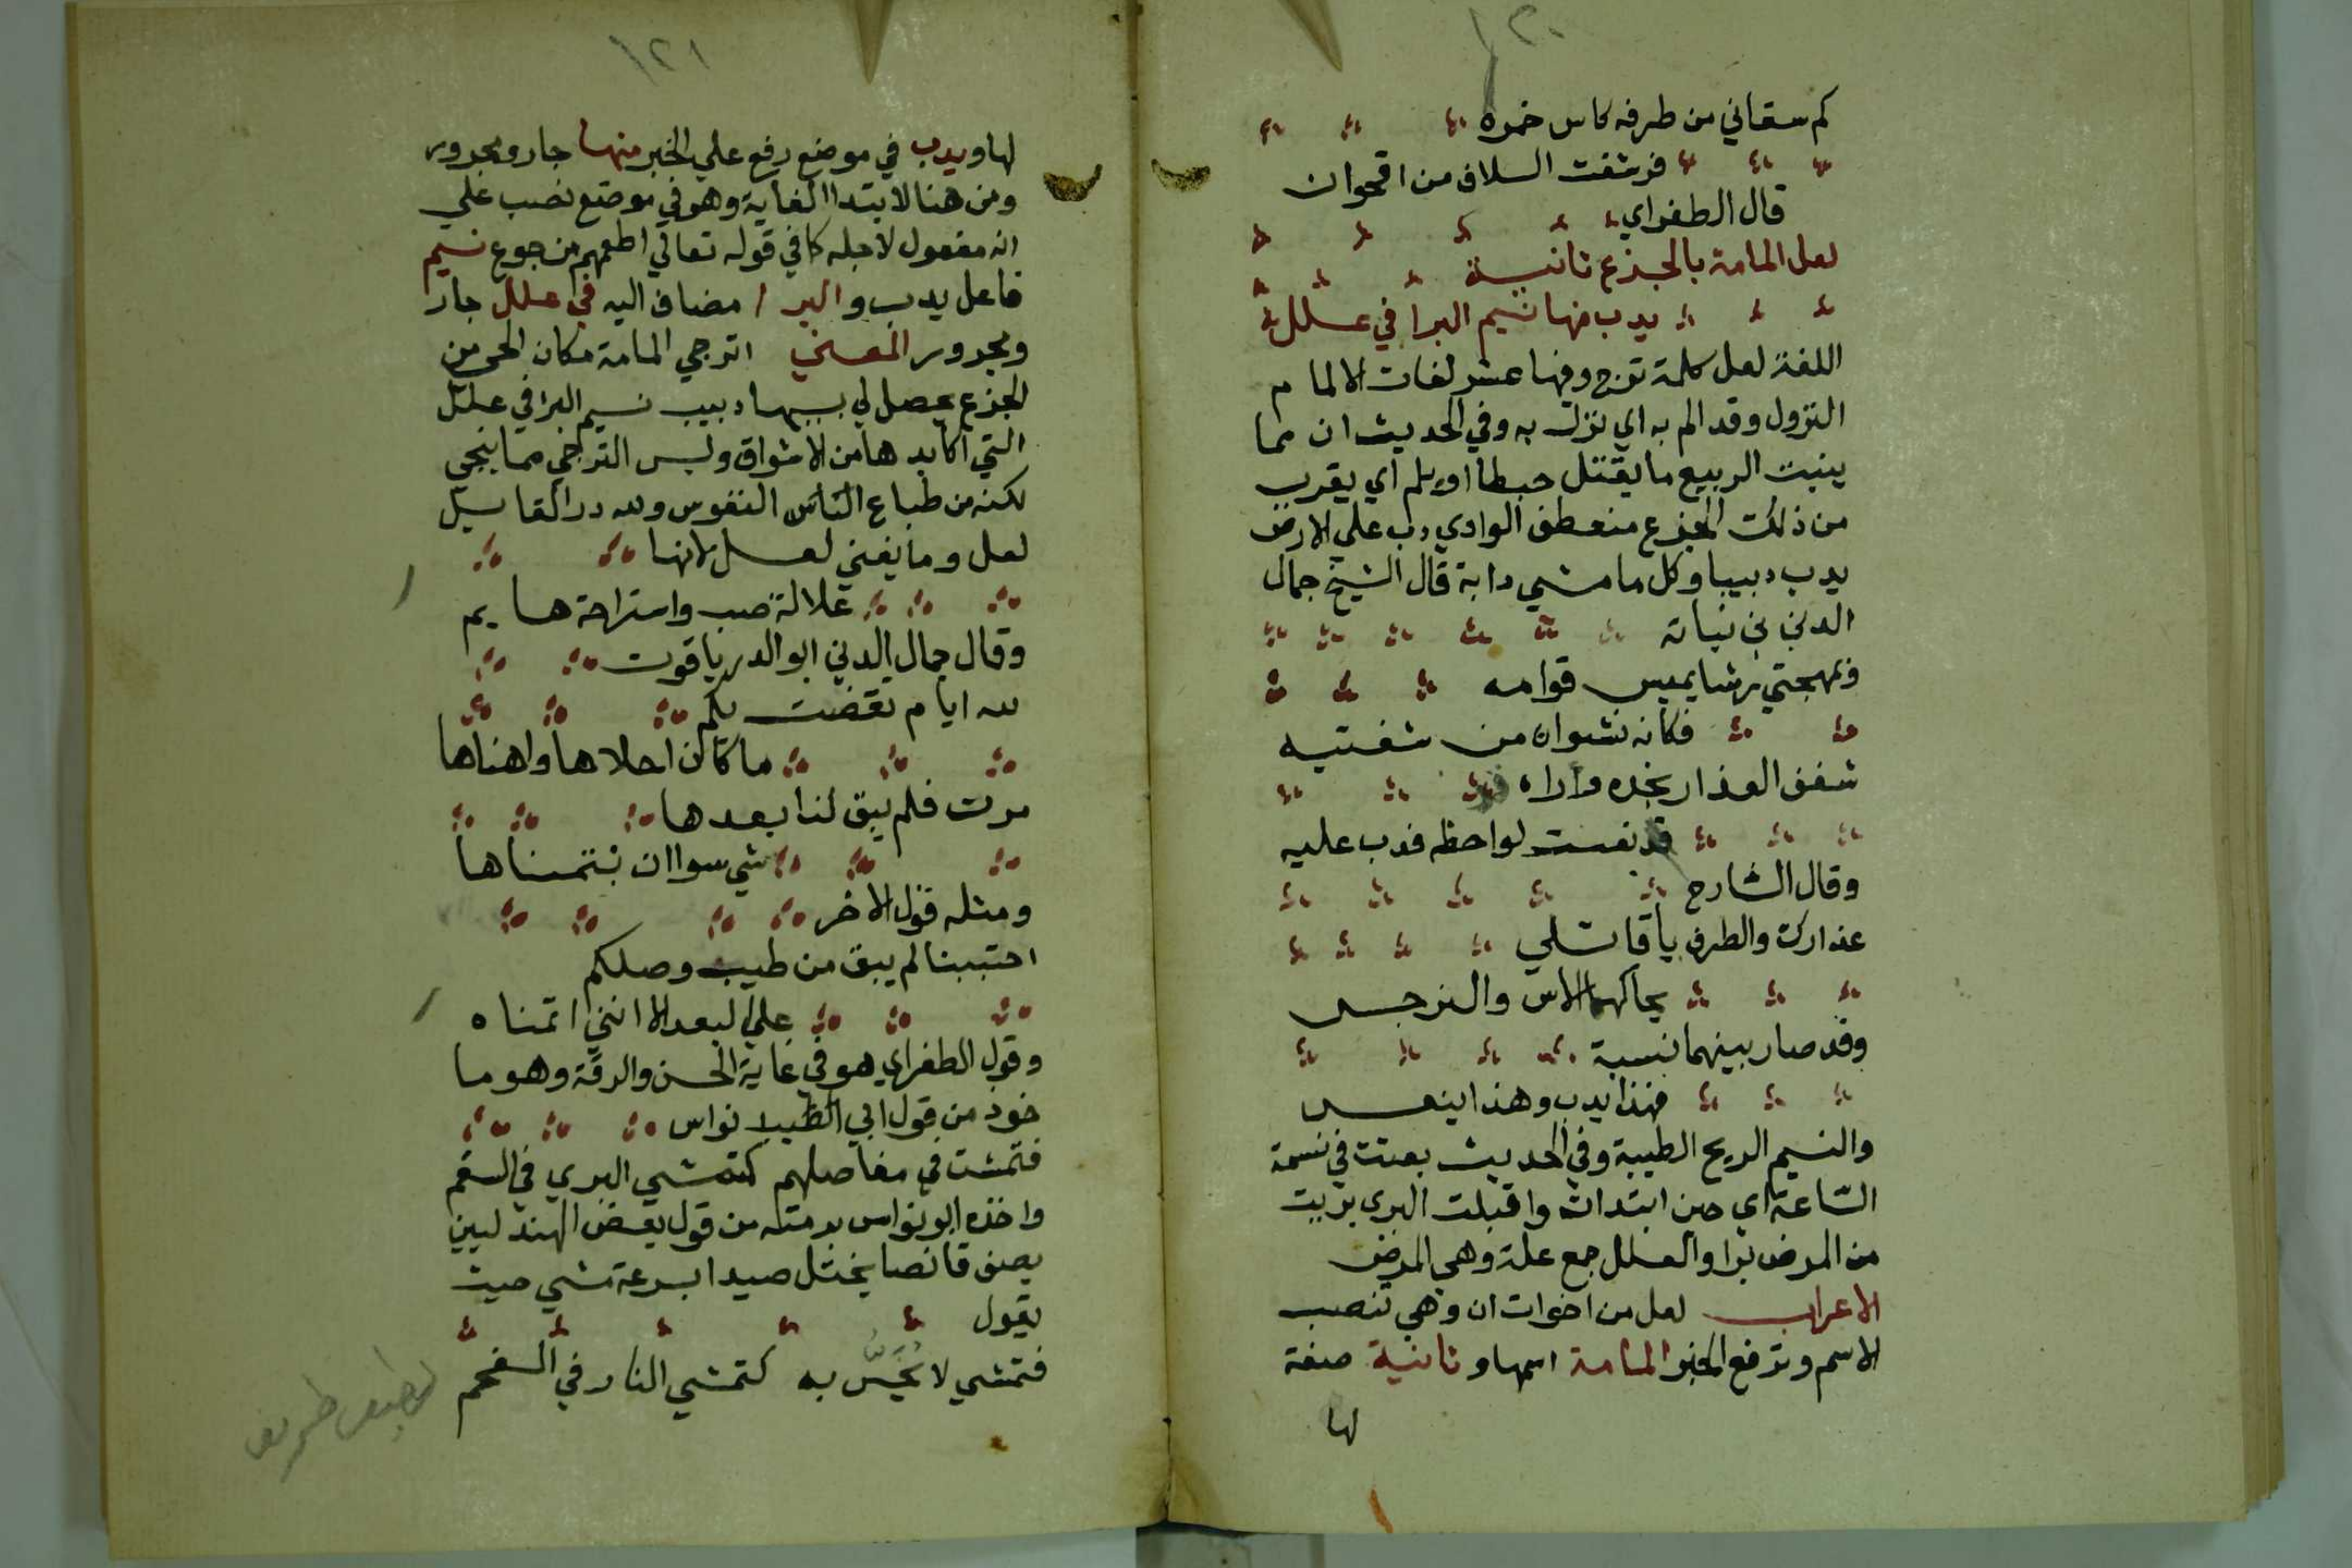 ١٢٠
كم سقاني من طرفه كاس خمره
فرشفت السلاف من اقحوان
قال الطغراي
لعل المامة بالجزع ثانية
يدب منها نسيم البرا في علل
اللغة لعل كلمة ترج وفيها عشر لغات الالمام
النزول وقد الم به اي نزل به وفي الحديث ان مما
ينبت الربيع ما يقتل حبطا او يلم اي يقرب
من ذلك الجزع منعطف الوادي دب علي الارض
يدب دبيبا وكل ما مشي دابة قال الشيخ جمال
الدين بن نباته
وبمهجتي رشا يميس قوامه
فكانه نشوان من شفتيه
شغف العذار بخده وراه
قد نعست لواحظه فدب عليه
وقال الشارح
عذارك والطرف يا قاتلي
يحاكهما الاس والنرجس
وقد صار بينهما نسبة
فهذا يدب وهذا ينعس
والنسيم الريح الطيبة وفي الحديث بعثت في نسمة
الساعة اي حين ابتدات واقبلت البري بريت
من المرض برا والعلل جمع علة وهي المرض
الاعراب لعل من اخوات ان وهي تنصب
الاسم وترفع الخبر المامة اسمها وثانية صفة
لها
١٢١
لها ويدب في موضع رفع علي الخبر منها جار ومجرور
ومن هنا لابتدا الغاية وهو في موضع نصب علي
انه مفعول لاجله كما في قوله تعالي اطعمهم من جوع نسيم
فاعل يدب والبرا مضاف اليه في علل جار
ومجرور المعني اترجي المامة مكان الحي من
الجزع يحصل لي بسببها دبيب نسيم البرا في علل
التي اكابدها من الاشواق وليس الترجي مما ينجي
لكنه من طباع الناس النفوس ولله در القاسيل
لعل وما يغني لعل لانها
علالة صب واستراحة هايم
وقال جمال الدين ابو الدر ياقوت
لله ايام تقضت بكم
ما كان احلاها واهناها
مرت فلم يبق لنا بعدها
شي سوا ان نتمناها
ومثله قول الاخر
احتببنا لم يبق من طيب وصلكم
علي البعد الا انني اتمناه
وقول الطغراي هو في غاية الحسن والرقة وهو ما
خوذ من قول ابي الطيب نواس
فتمشت في مفاصلهم كتمشي البري في السقم
واخذه ابو نواس برمته من قول بعض الهذليين
يصف قانصا يختل صيدا بسرعة مشي حيث
يقول
فتمشي لا يُحَسُّ به كتمشي النار في الفحم